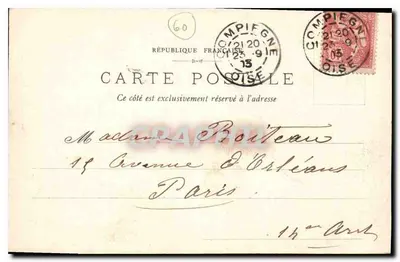 60
COMPIEGNE
21 20
23 -9
13
OISE
COMPIEGNE
21 20
23 -9
13
OISE
RÉPUBLIQUE FRANÇAISE
CARTE POSTALE
Ce côté est exclusivement réservé à l'adresse
Madame Boiteau
15 Avenue d'Orléans
Paris
14e Art